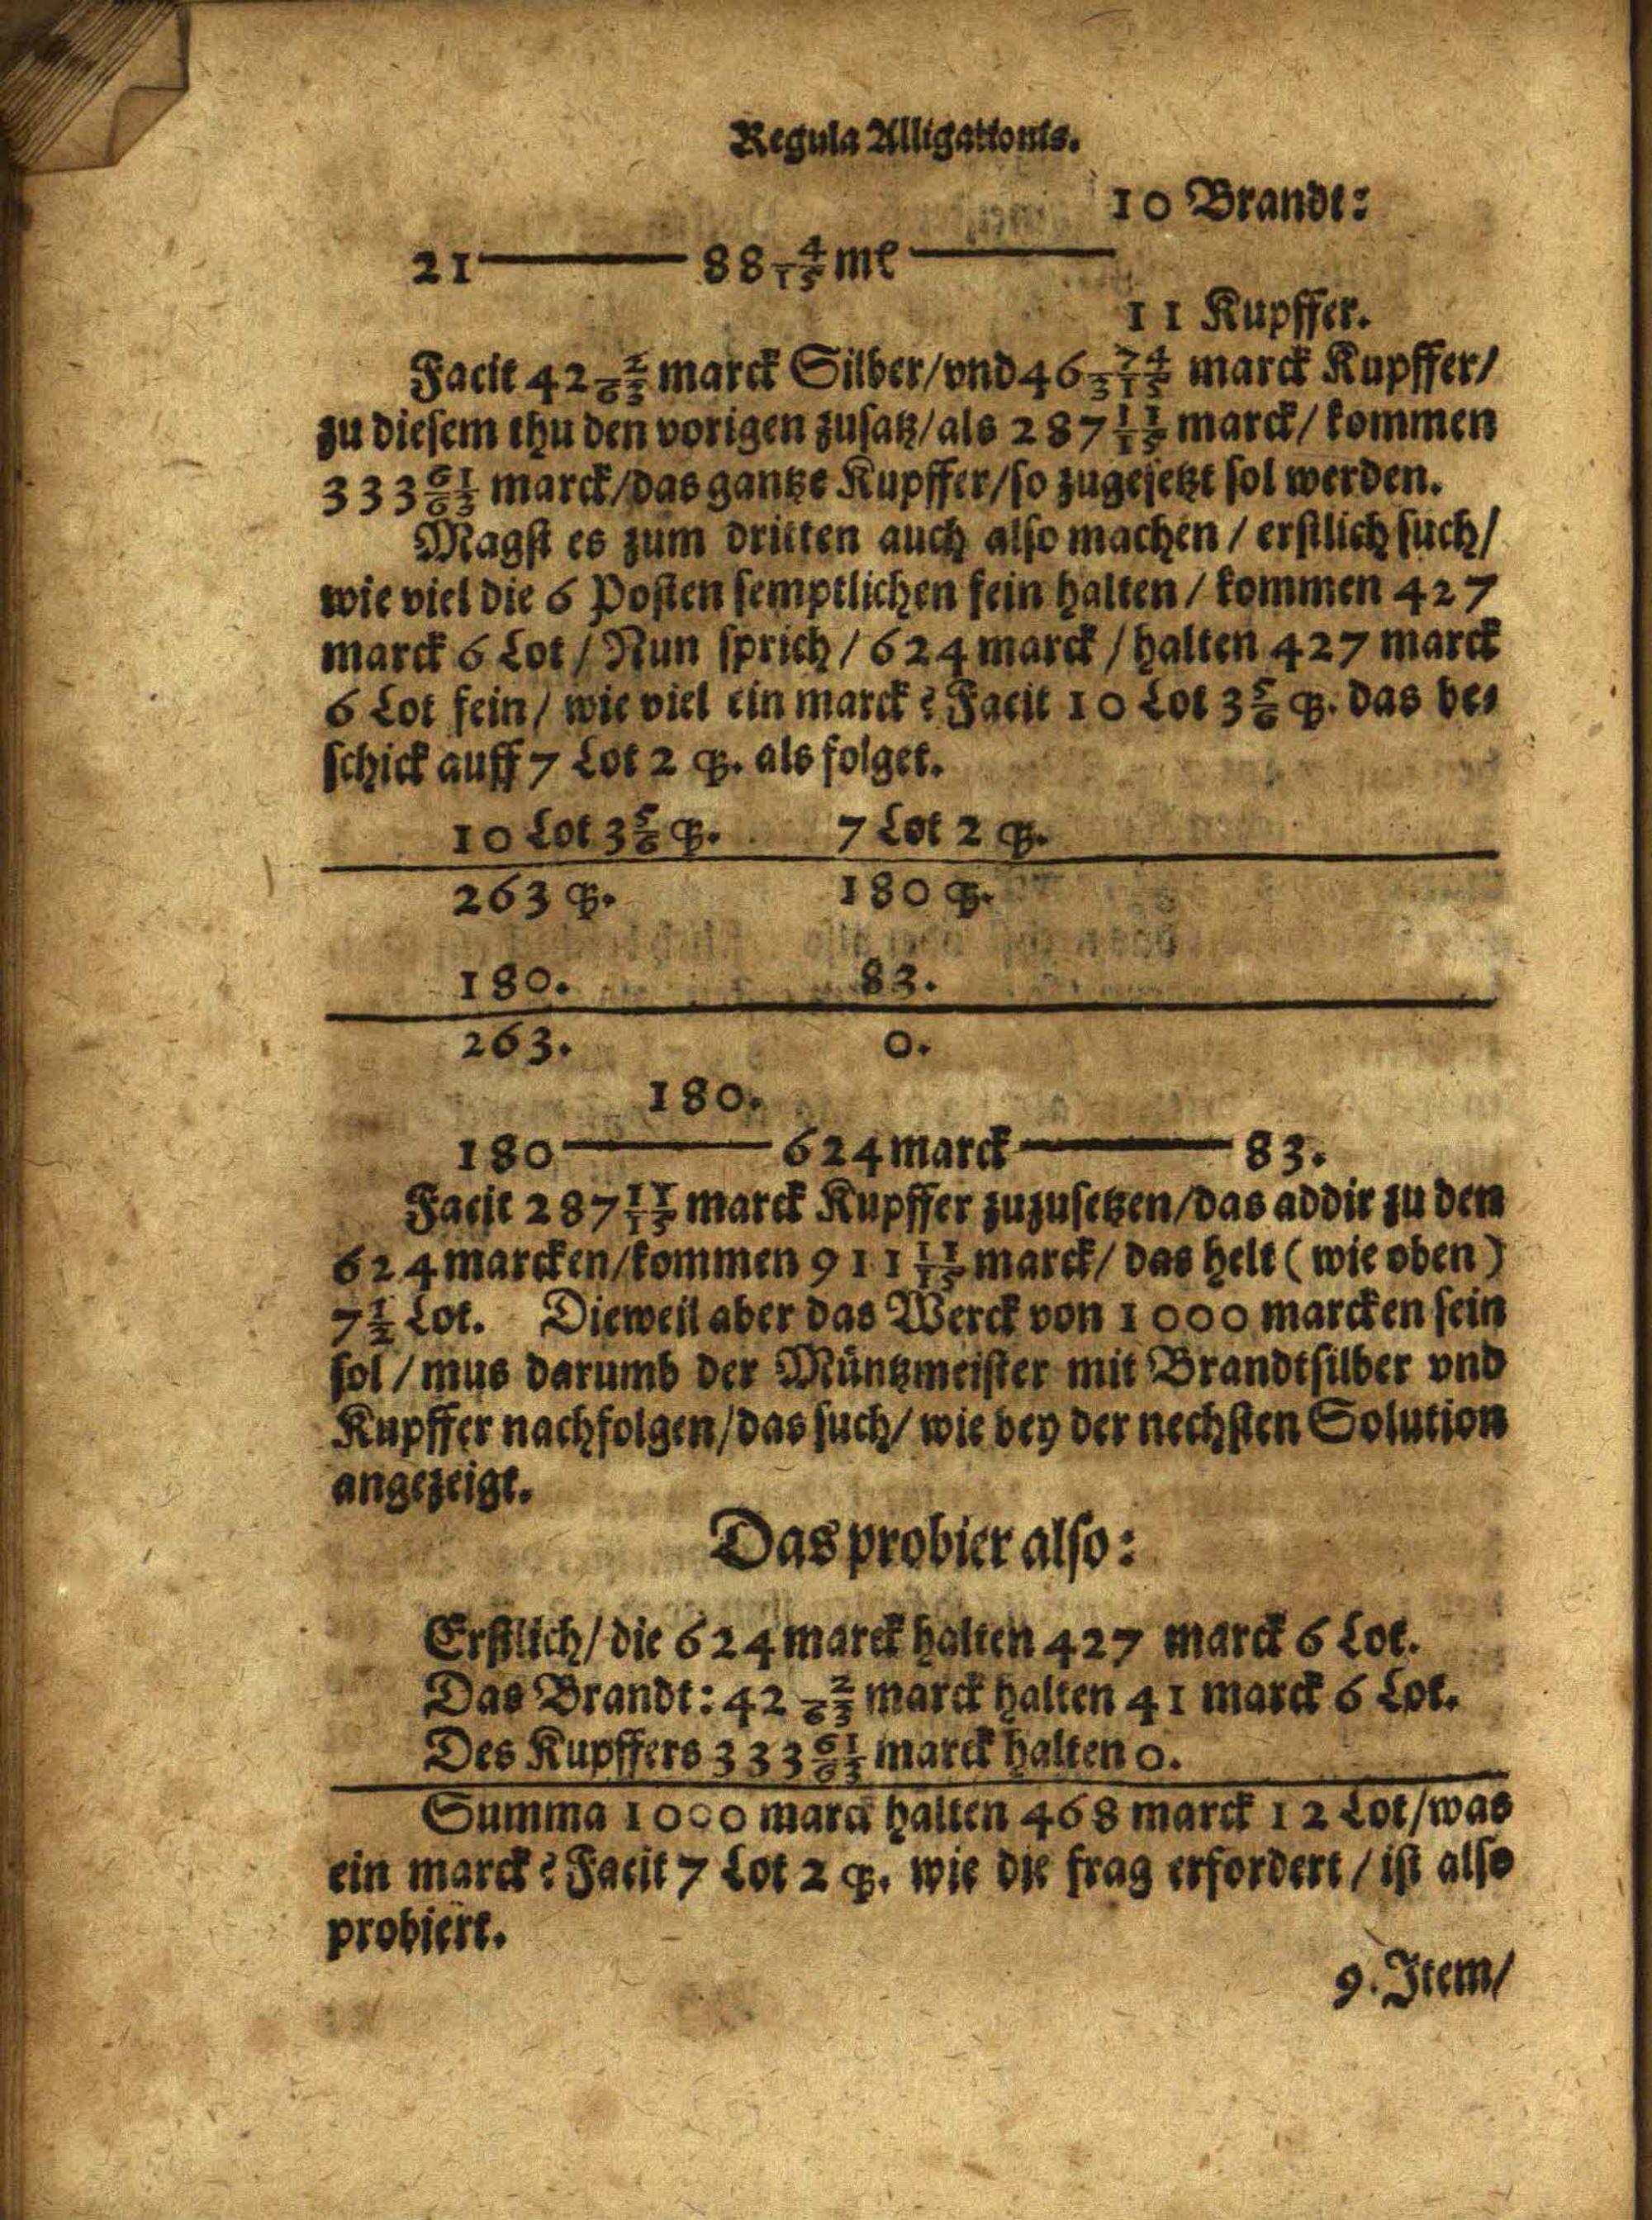 Regula Alligationis.
10 Brandt:
21 —— 88 4/15 mℓ ——
11 Kupffer.
Facit 42 2/63 marck Silber/vnd 46 74/315 marck Kupffer/
zu diesem thu den vorigen zusatz/als 287 11/15 marck/kommen
333 61/63 marck/das gantze Kupffer/so zugesetzt sol werden.
Magst es zum dritten auch also machen/erstlich such/
wie viel die 6 Posten semptlichen fein halten/kommen 427
marck 6 Lot/Nun sprich/624 marck/halten 427 marck
6 Lot fein/wie viel ein marck? Facit 10 Lot 3 5/6 q. das be-
schick auff 7 Lot 2 q. als folget.
10 Lot 3 5/6 q. 7 Lot 2 q.
263 q. 180 q.
180. 83.
263. 0.
180.
180 —— 624 marck —— 83.
Facit 287 11/15 marck Kupffer zuzusetzen/das addir zu den
624 marcken/kommen 911 11/15 marck/das helt (wie oben)
7 1/2 Lot. Dieweil aber das Werck von 1000 marcken sein
sol/mus darumb der Müntzmeister mit Brandtsilber vnd
Kupffer nachfolgen/das such/wie bey der nechsten Solution
angezeigt.
Das probier also:
Erstlich/die 624 marck halten 427 marck 6 Lot.
Das Brandt: 42 2/63 marck halten 41 marck 6 Lot.
Des Kupffers 333 61/63 marck halten 0.
Summa 1000 marck halten 468 marck 12 Lot/was
ein marck? Facit 7 Lot 2 q. wie die frag erfordert/ist also
probiert.
9. Item/